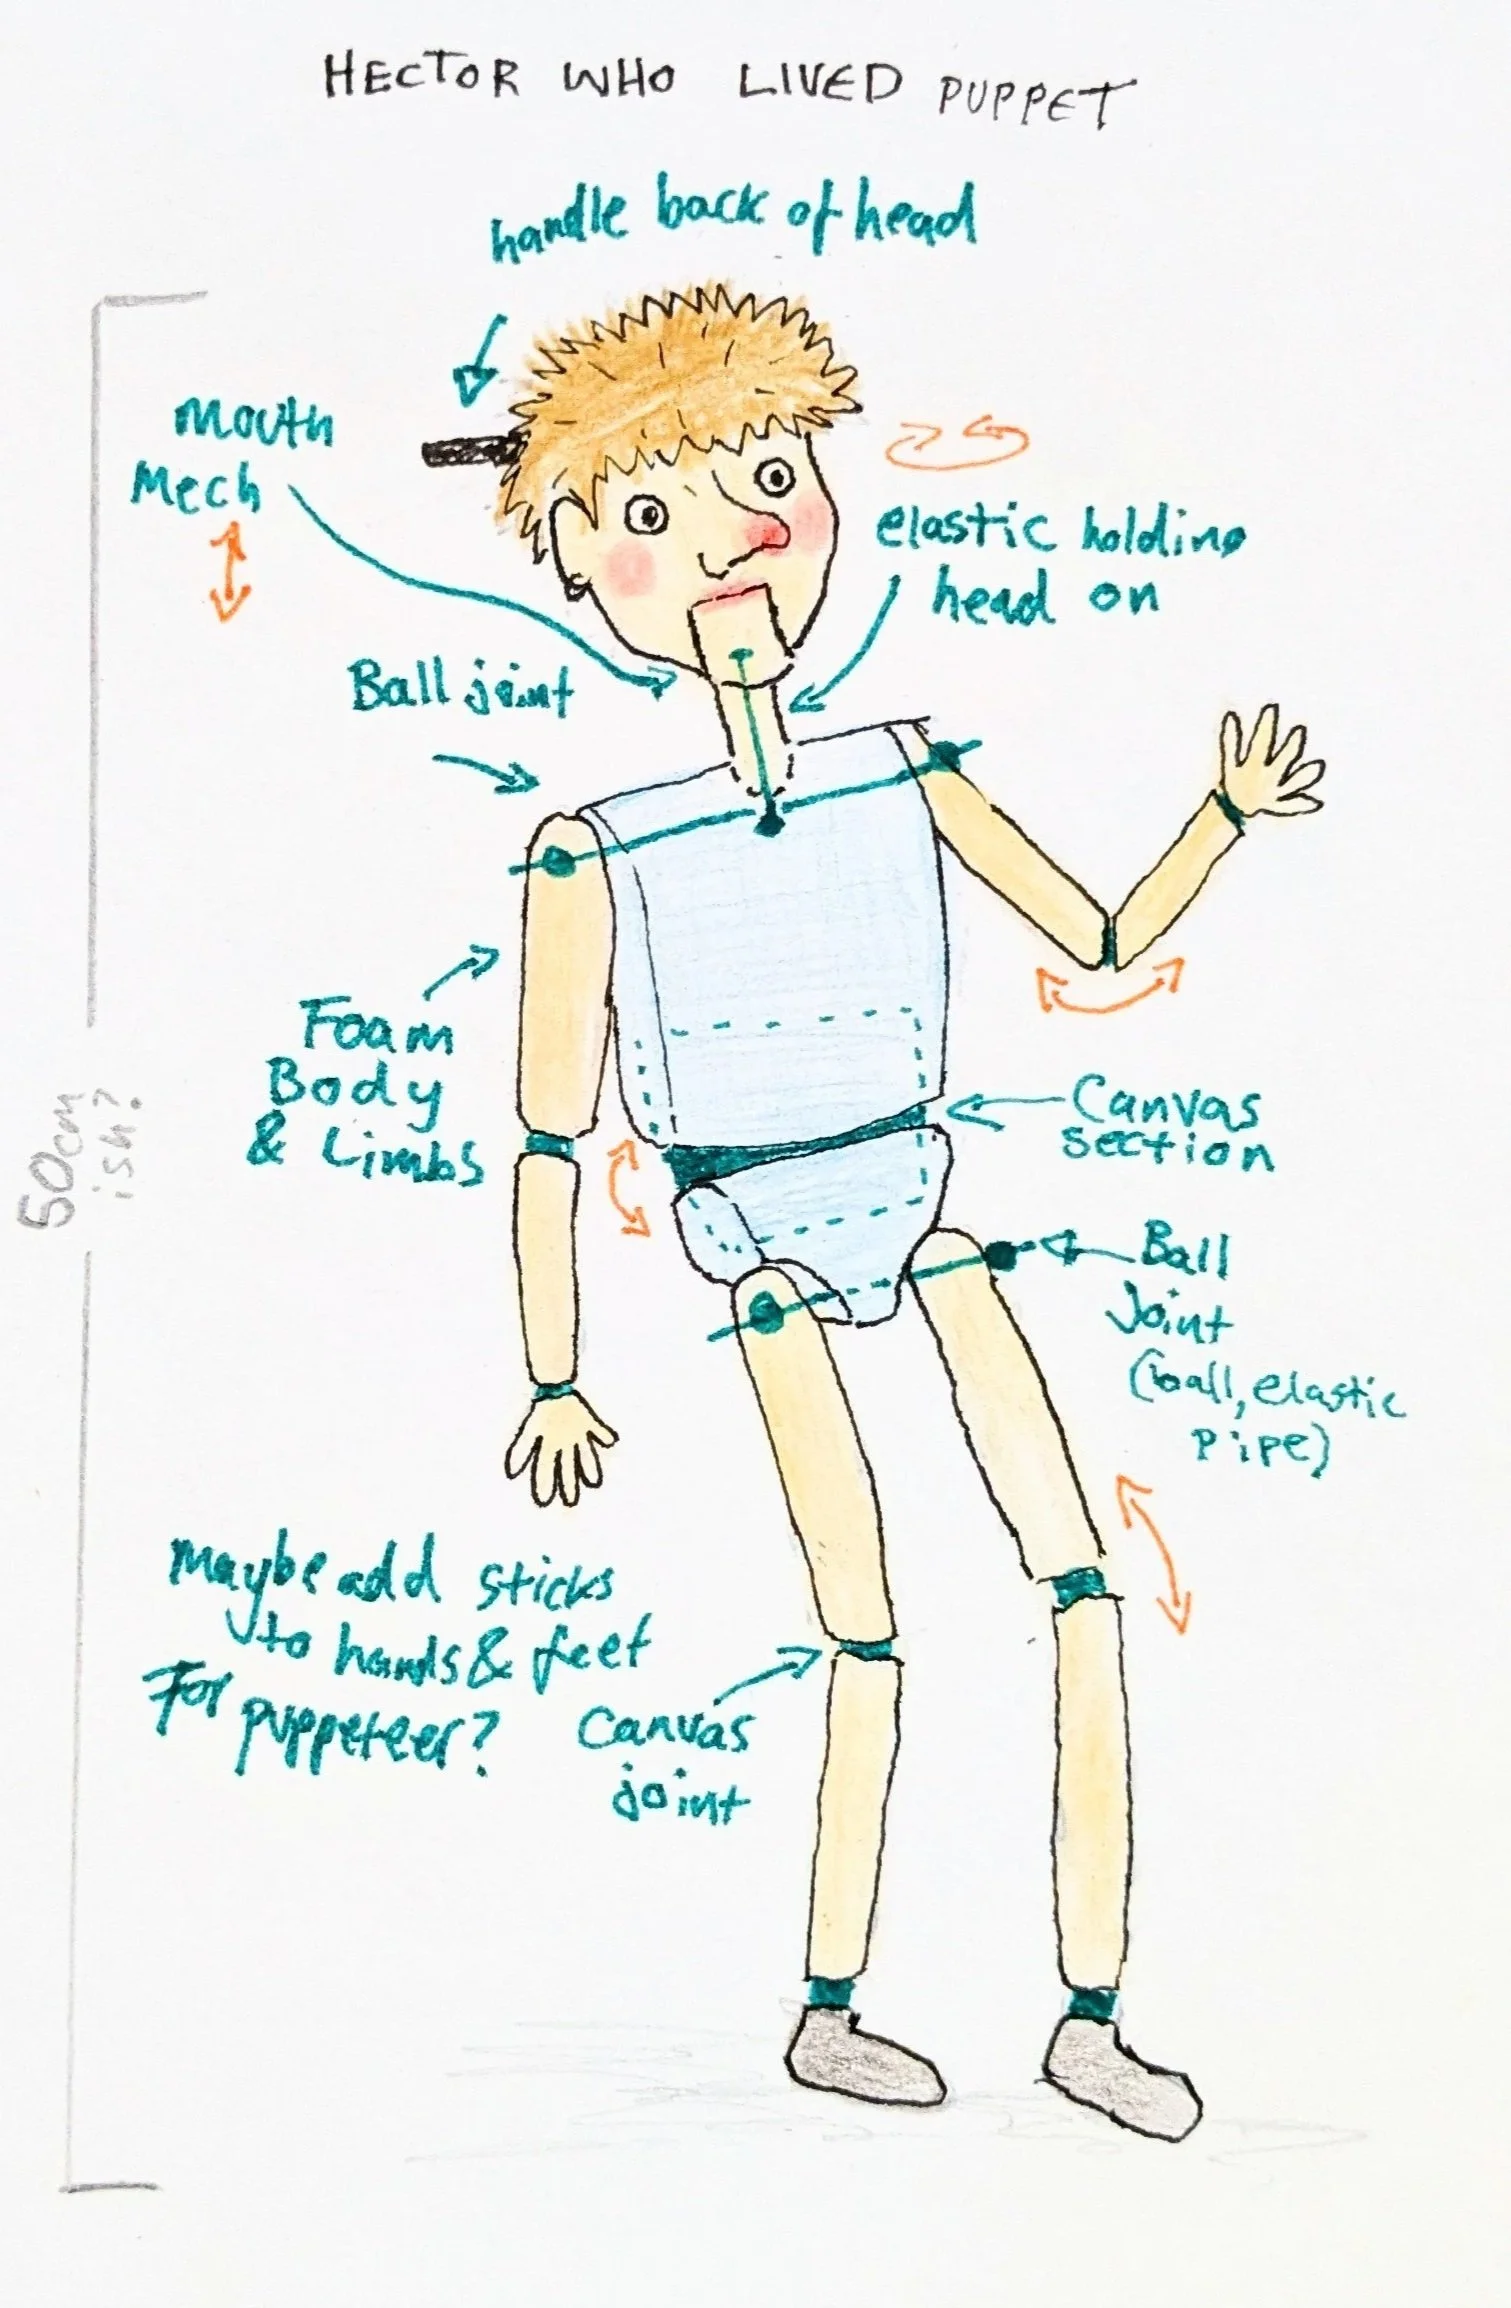 HECTOR WHO LIVED PUPPET
handle back of head
Mouth
Mech
elastic holding
head on
Ball joint
Foam
Body
& Limbs
50cm
ish?
Canvas
section
Ball
Joint
(ball, elastic
pipe)
Maybe add sticks
to hands & feet
For puppeteer?
Canvas
joint